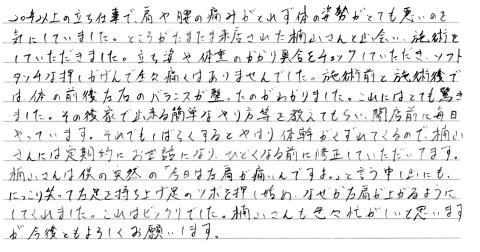 20年以上の立ち仕事で、肩や腰の痛みがとれず体の姿勢がとても悪いのを
気にしていました。ところがたまたま来店された楠山さんと出会い、施術を
していただきました。立ち姿や体重のかかり具合をチェックしていただき、ソフト
タッチな押しかげんで全々痛くはありませんでした。施術前と施術後で
は、体の前後左右のバランスが整ったのがわかりました。これにはとても驚き
ました。その後家で出来る簡単なやり方等を教えてもらい、開店前に毎日
やっています。それでもしばらくするとやはり体幹がくずれてくるので楠山
さんには定期的にお世話になり、ひどくなる前に修正していただいてます。
楠山さんは僕の突然の「今日は右肩が痛いんですよ。」と言う申し出にも、
にっこり笑って左足を持ち上げ足のツボを押し始め、なぜか右肩が上がるように
してくれました。これはビックリでした。楠山さんも色々忙がしいと思います
が今後ともよろしくお願いします。